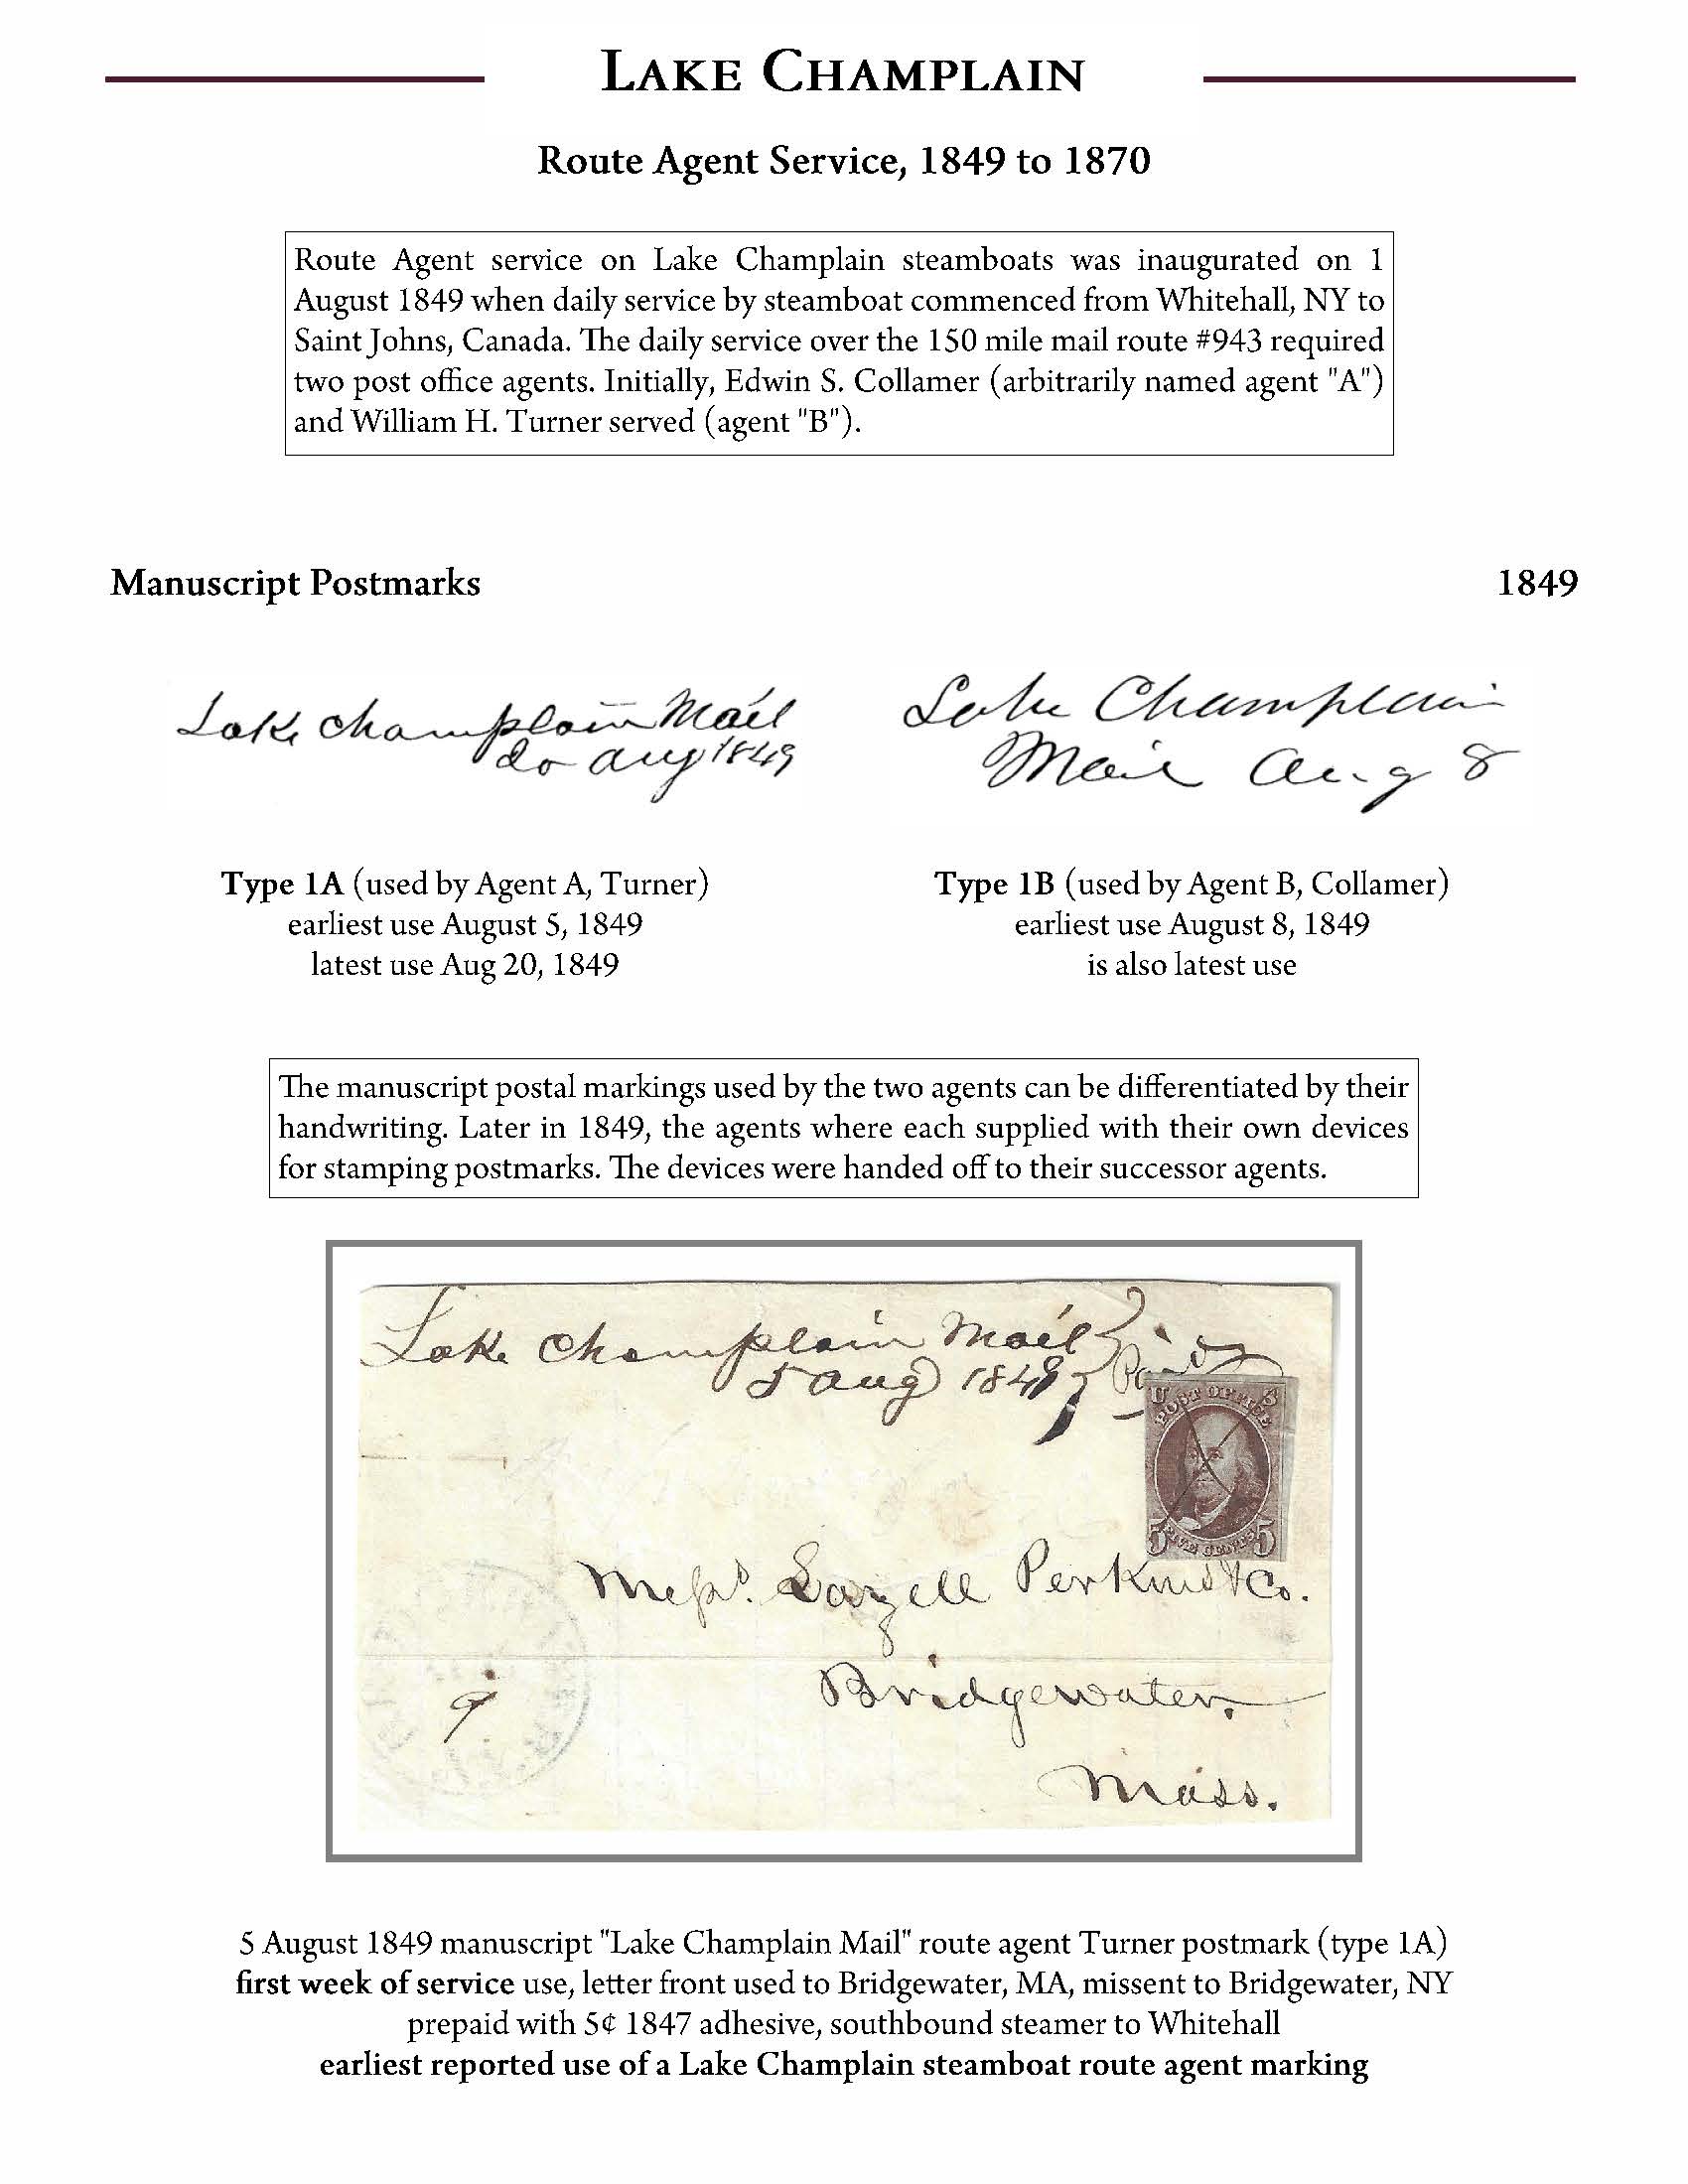 LAKE CHAMPLAIN
Route Agent Service, 1849 to 1870
Route Agent service on Lake Champlain steamboats was inaugurated on 1
August 1849 when daily service by steamboat commenced from Whitehall, NY to
Saint Johns, Canada. The daily service over the 150 mile mail route #943 required
two post office agents. Initially, Edwin S. Collamer (arbitrarily named agent "A")
and William H. Turner served (agent "B").
Manuscript Postmarks
1849
Lake Champlain Mail
20 Aug 1849
Lake Champlain
Mail Aug 8
Type 1A (used by Agent A, Turner)
earliest use August 5, 1849
latest use Aug 20, 1849
Type 1B (used by Agent B, Collamer)
earliest use August 8, 1849
is also latest use
The manuscript postal markings used by the two agents can be differentiated by their
handwriting. Later in 1849, the agents where each supplied with their own devices
for stamping postmarks. The devices were handed off to their successor agents.
Lake Champlain Mail
5 Aug 1849
Paid
U S
POST OFFICE
5 FIVE CENTS 5
Messrs. Lazell Perkins & Co.
Bridgewater.
Mass.
5 August 1849 manuscript "Lake Champlain Mail" route agent Turner postmark (type 1A)
first week of service use, letter front used to Bridgewater, MA, missent to Bridgewater, NY
prepaid with 5¢ 1847 adhesive, southbound steamer to Whitehall
earliest reported use of a Lake Champlain steamboat route agent marking